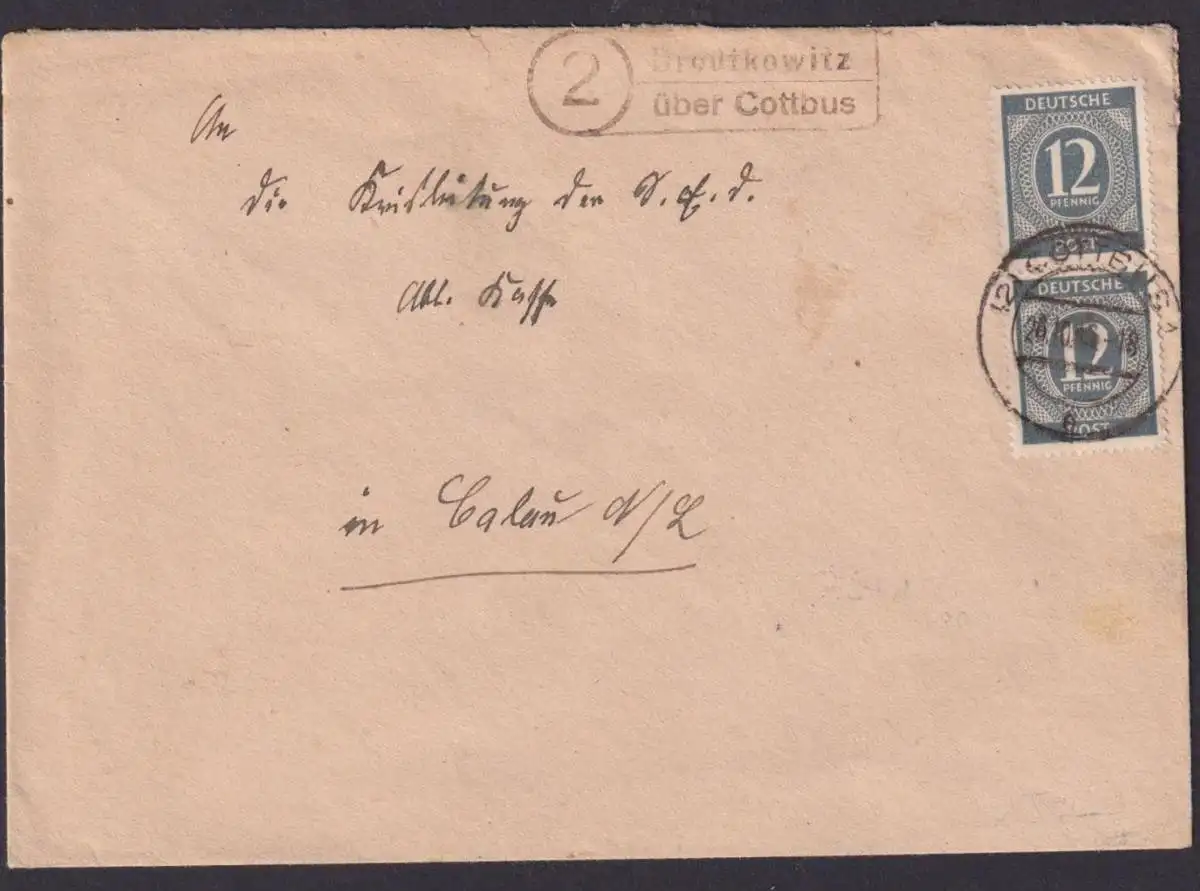 2
über Cottbus
An
die Kreisleitung der S.E.D.
Abt. Kasse
in Calau N/L
DEUTSCHE
12
PFENNIG
POST
(2) COTTBUS 1
DEUTSCHE
12
PFENNIG
POST